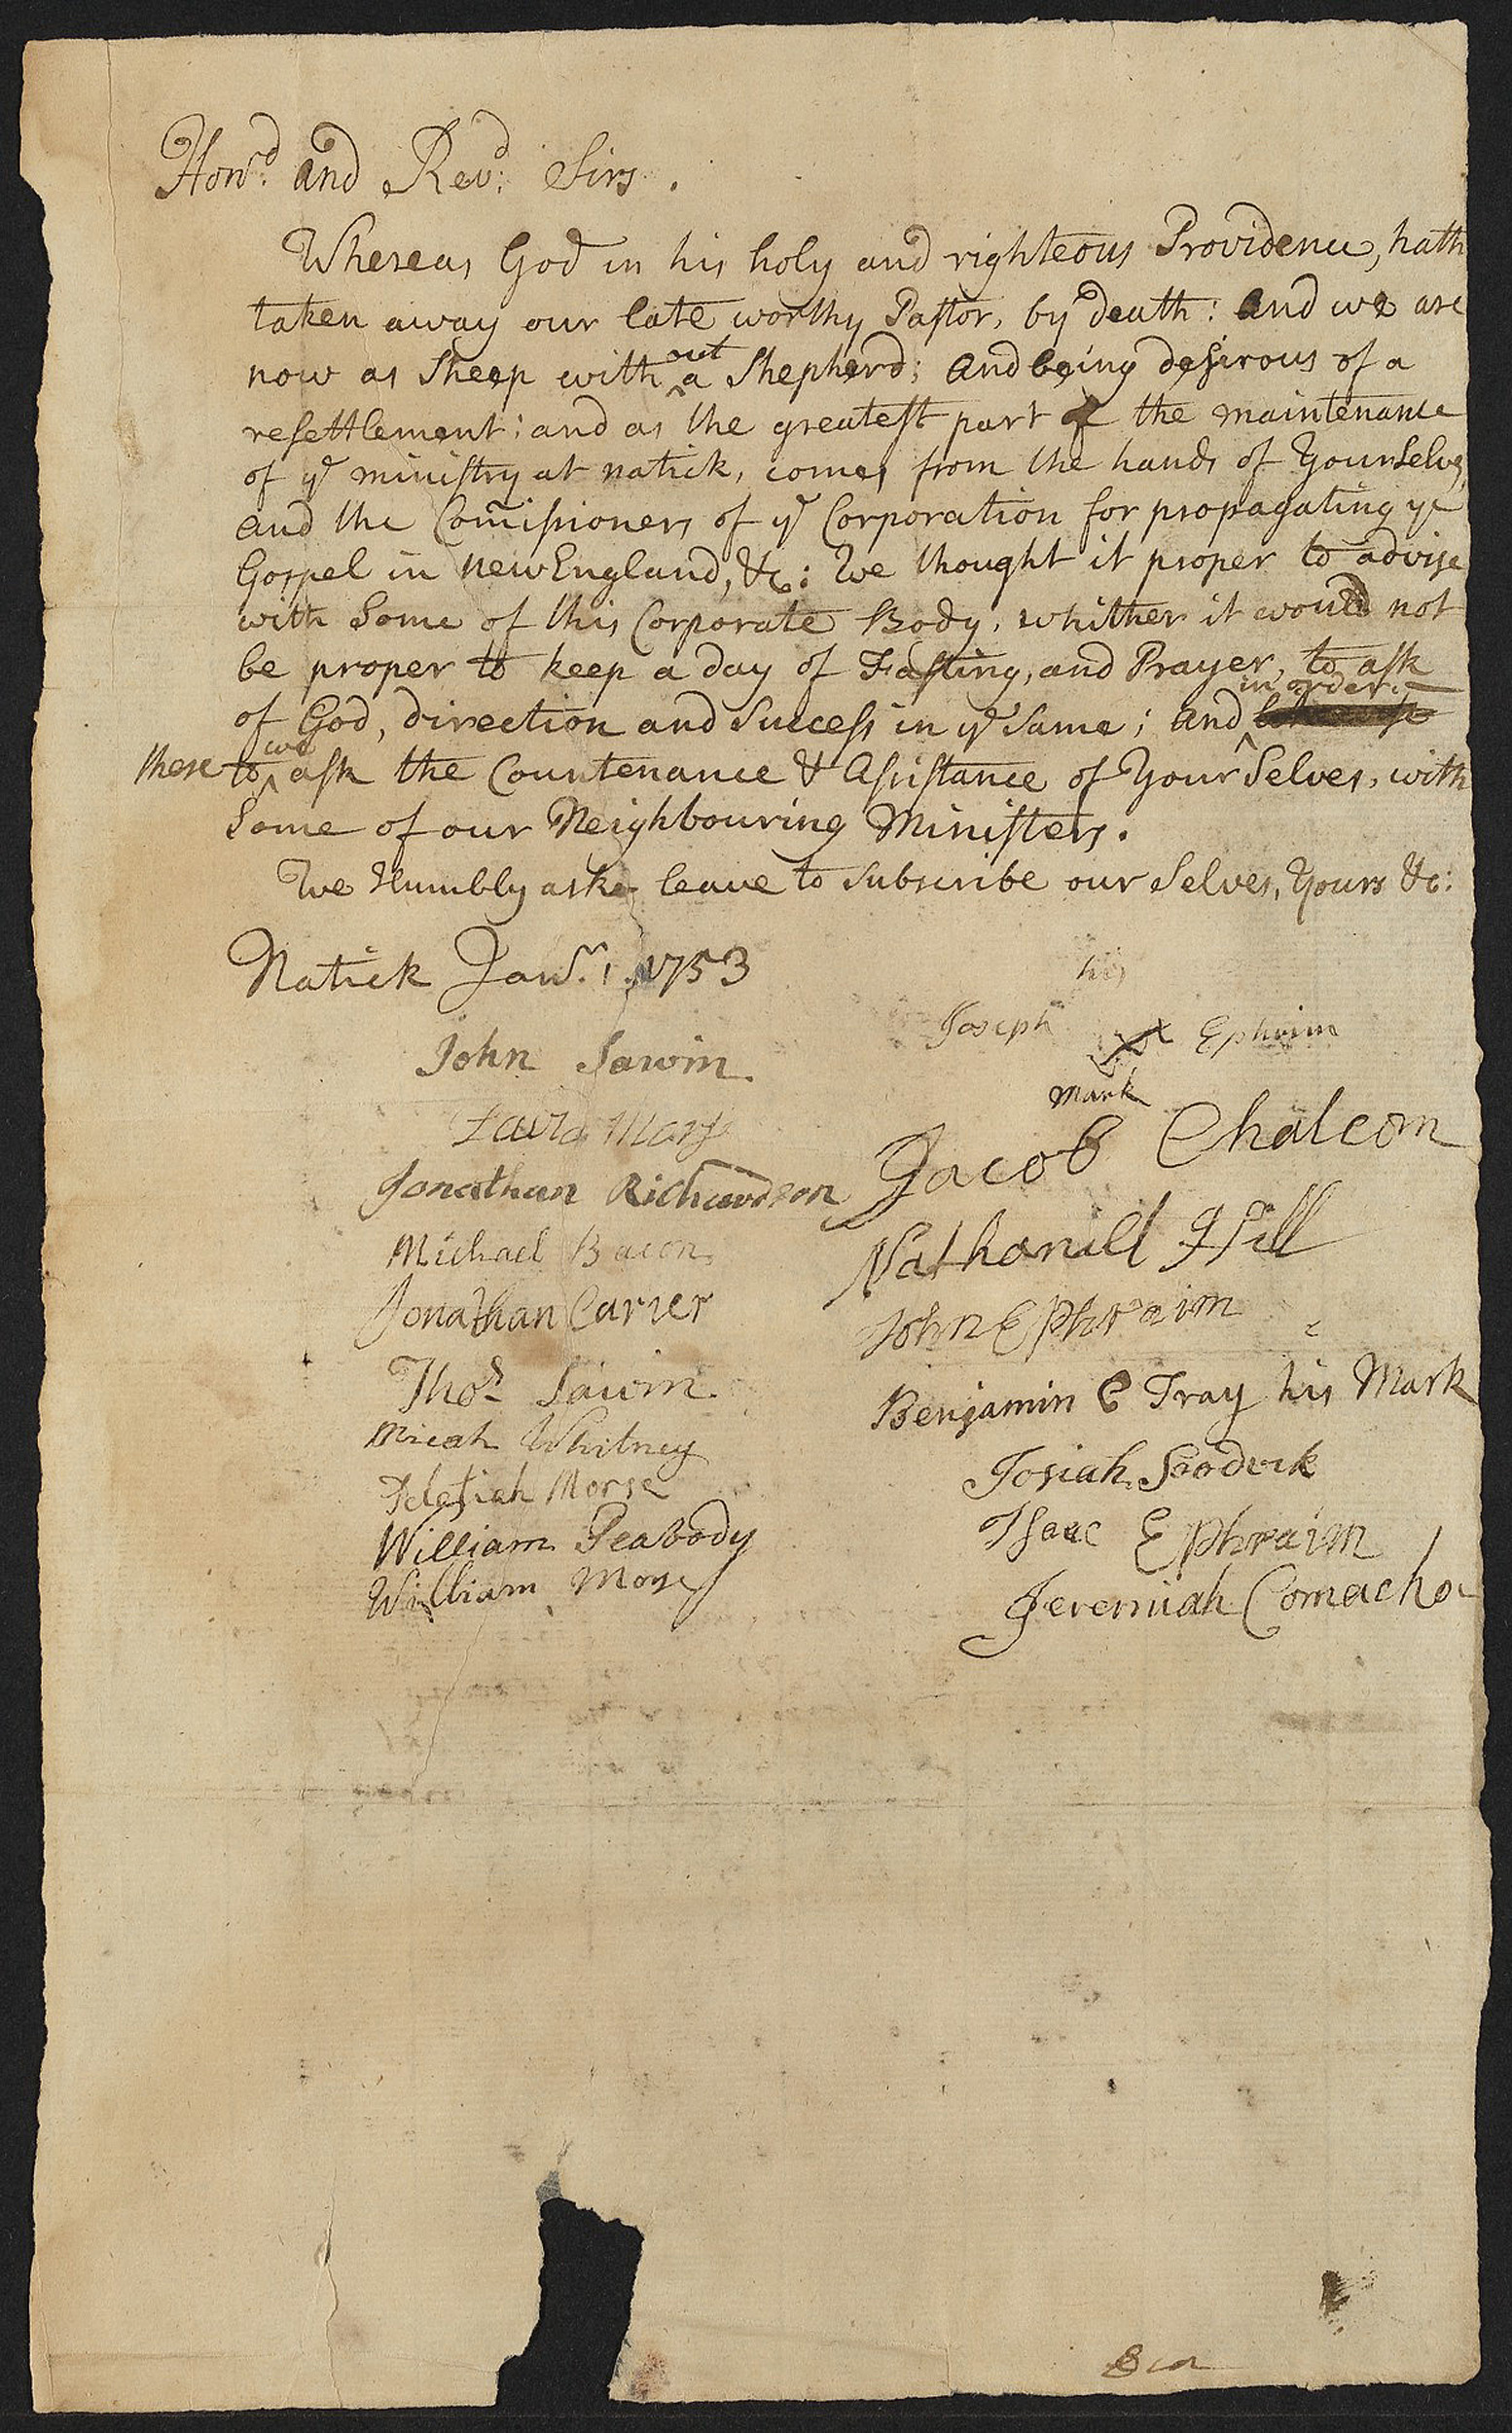 Honrd. and Revd: Sirs.
Whereas God in his holy and righteous Providence, hath
taken away our late worthy Pastor, by death: and we are
now as Sheep with out a Shepherd; and being desirous of a
resettlement: and as the greatest part of the maintenance
of ye ministry at natick, comes from the hands of YourSelves,
and the Com̃issioners of ye Corporation for propagating ye
Gospel in new England, &c: We thought it proper to advise
with Some of this Corporate Body, whither it would not
be proper to keep a day of Fasting, and Prayer, to ask
of God, direction and Success in ye Same; and in order
there to we ask the Countenance & Assistance of Your Selves, with
Some of our Neighbouring Ministers.
We Humbly aske leave to Subscribe our Selves, Yours &c:
Natick Janr. 1. 1753
John Sawin
Jonathan Richardson
Michael Bacon
Jonathan Carver
Thos. Sawin
Micah Whitney
Pelatiah Morse
William Peabody
William Morse
his
Joseph Ephraim
mark
Jacob Chalcom
Nathaniell Hill
John Ephraim
Benjamin Tray his Mark
Josiah
Isaac Ephraim
Jeremiah Comacho